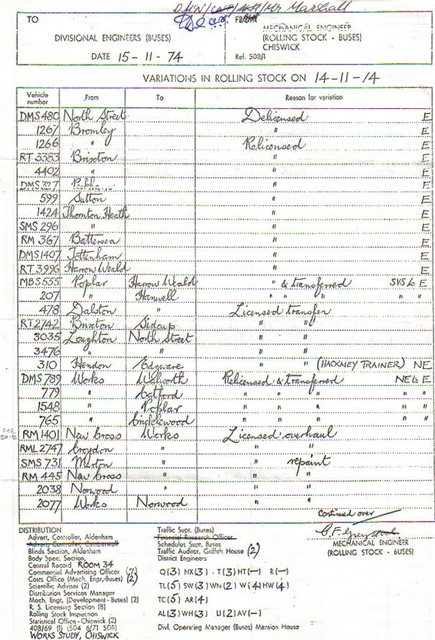 Marshall
TO
DIVISIONAL ENGINEERS (BUSES)
DATE 15-11-74
MECHANICAL ENGINEER
(ROLLING STOCK - BUSES)
CHISWICK
Ref. 508/1
VARIATIONS IN ROLLING STOCK ON 14-11-74
Vehicle number From To Reason for variation
DMS 480 North Street Delicensed E
1267 Bromley " E
1266 " Relicensed E
RT 3383 Brixton " E
4402 " " E
DMS 327 " E
599 Sutton " E
1424 Thornton Heath " E
SMS 296 " " E
RM 367 Battersea " E
DMS 1407 Tottenham " E
RT 3996 Harrow Weald " E
MBS 555 Poplar Harrow Weald " & transferred SVS to E
207 " Hanwell " " " " "
478 Dalston " Licensed transfer
RT 2742 Brixton Sidcup " "
3035 Loughton North Street " "
3476 " " " "
310 Hendon Edgware " " (HACKNEY TRAINER) NE
DMS 789 Works Walworth Relicensed & transferred NE to E
779 " Catford " " " " "
1548 " Poplar " " " " "
765 " " " " " "
RM 1401 New Cross Works Licensed overhaul
RML 2747 Croydon " " "
SMS 731 Merton " " repaint
RM 445 New Cross " " "
2038 Norwood " " "
2077 Works Norwood " "
continued over
MECHANICAL ENGINEER
(ROLLING STOCK - BUSES)
DISTRIBUTION
Advert. Controller, Aldenham
Blinds Section, Aldenham
Body Spec. Section,
Central Record ROOM 34
Commercial Advertising Officer
Costs Office (Mech. Engr.-Buses) (2)
Scientific Adviser (2)
Distribution Services Manager
Mech. Engr. (Development - Buses) (2)
R. S. Licensing Section (8)
Rolling Stock Inspection
Statistical Office - Chiswick (2)
WORKS STUDY, CHISWICK
Traffic Supt. (Buses)
Financial Research Officer
Schedules Supt. Buses
Traffic Auditor, Griffith House (2)
District Engineers
Q(3) NX(3) T(3) HT(-) R(-)
TL(5) SW(3) WN(2) W(4) HW(4)
TC(5) AR(4)
AL(3) WH(3) U(2) AV(-)
Divl. Operating Manager (Buses) Mansion House